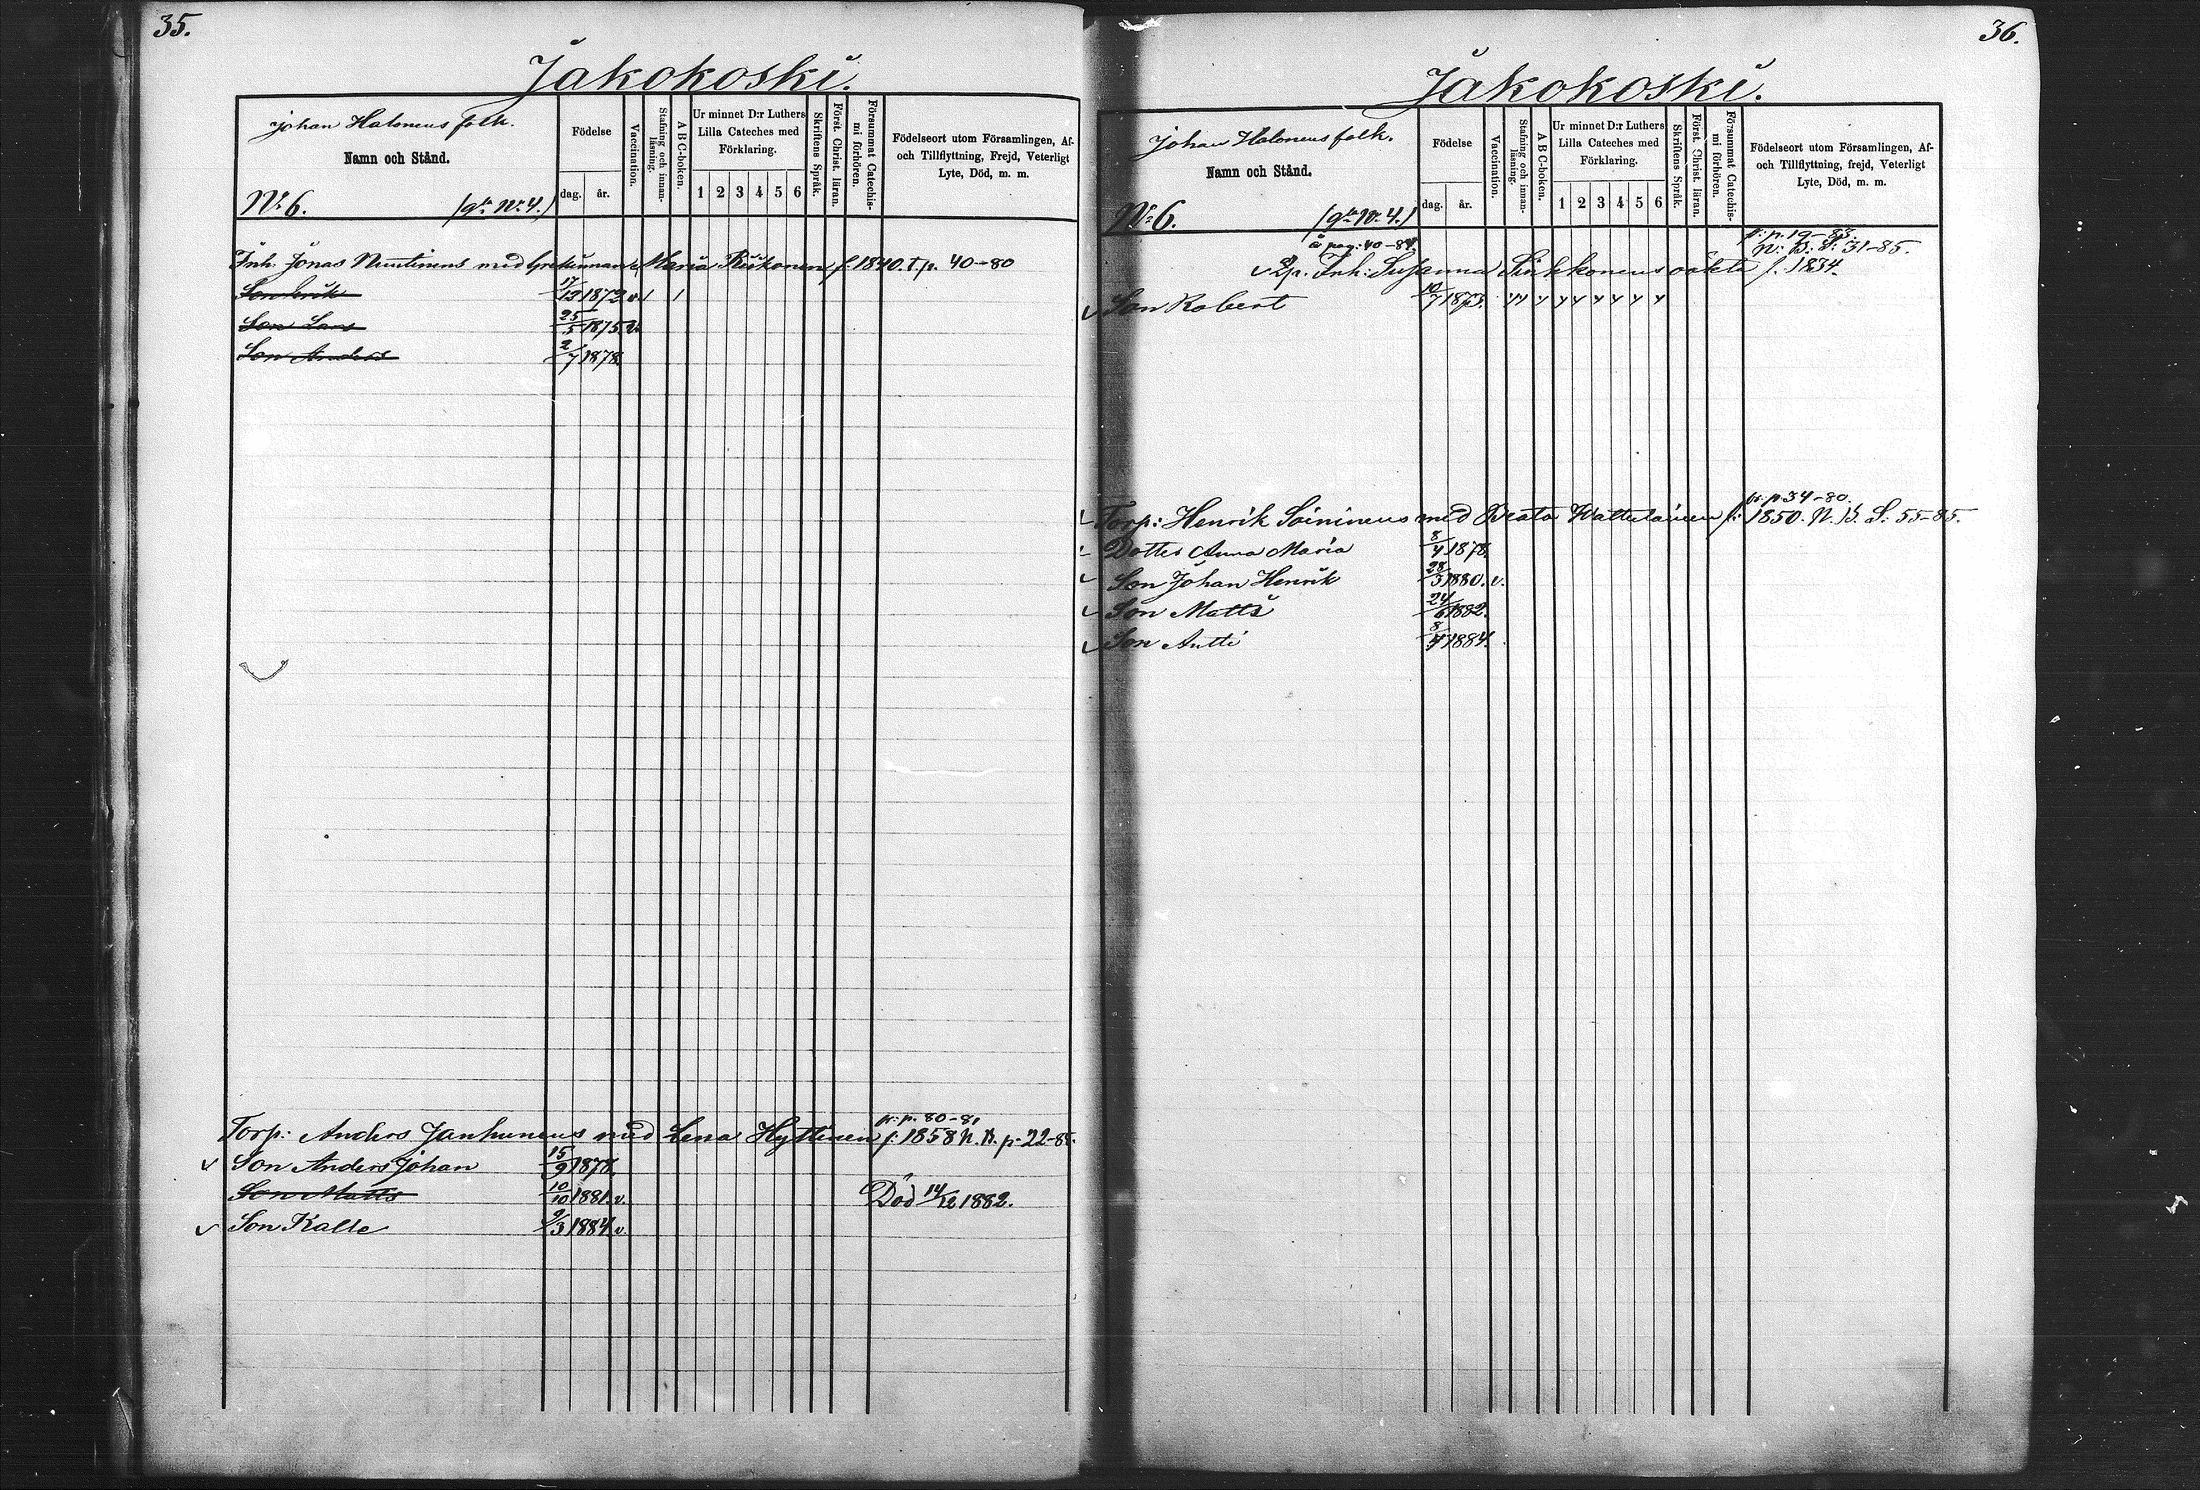 35.
Jakokoski.
Johan Halonens folk.
Namn och Stånd.
No 6. (gla No 4.)
Födelse
dag. år.
Vaccination.
Stafning och innan-läsning.
A B C-boken.
Ur minnet D:r Luthers Lilla Cateches med Förklaring.
1 2 3 4 5 6
Skriftens Språk.
Först. Christ. läran.
Försummat Catechis-mi förhören.
Födelseort utom Församlingen, Af- och Tillflyttning, Frejd, Veterligt Lyte, Död, m. m.
Inh. Jonas Nuutinens med Grekinnan Maria f. 1840. T.p. 40-80
Son Erik 17/12 1872 v. / /
Son Lars 25/5 1875 v.
Son Anders 2/7 1878
p. 80-81
Torp: Anders Janhunens med Lena Hyttinen f. 1858 N.B. p. 22-85.
Son Anders Johan 15/9 1878
Son Matts 10/10 1881 v. Död 14/12 1882.
Son Kalle 2/3 1884 v.
36.
Jakokoski.
Johan Halonens folk.
Namn och Stånd.
No 6. (gla No 4.)
Födelse
dag. år.
Vaccination.
Stafning och innan-läsning.
A B C-boken.
Ur minnet D:r Luthers Lilla Cateches med Förklaring.
1 2 3 4 5 6
Skriftens Språk.
Först. Christ. läran.
Försummat Catechis-mi förhören.
Födelseort utom Församlingen, Af- och Tillflyttning, frejd, Veterligt Lyte, Död, m. m.
å pag: 40-84. p. 19-83.
N: B: S: 31-85.
Inh: Susanna Sinkkonens oäkta f. 1834.
Son Robert 10/7 1873.
fr. p. 34-80.
Torp: Henrik Soininens med Beata Wattulainen f: 1850. N. B. S: 55-85.
Dotter Anna Maria 8/4 1878.
Son Johan Henrik 28/3 1880. v.
Son Matts 24/6 1882.
Son Antti 8/4 1884.